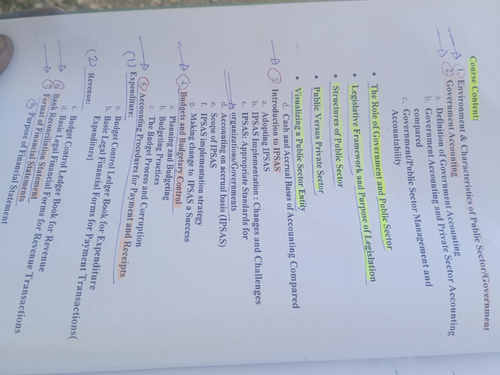 Course Content:
(1) Environment & Characteristics of Public Sector/Government
(2) Government Accounting
a. Definition of Government Accounting
b. Government Accounting and Private Sector Accounting
compared
c. Government/Public Sector Management and
Accountability
• The Role of Government and Public Sector
• Legislative Framework and Purpose of Legislation
• Structures of Public Sector
• Public Versus Private Sector
• Visualizing a Public Sector Entity
d. Cash and Accrual Bases of Accounting Compared
(3) Introduction to IPSAS
a. Adopting IPSAS
b. IPSAS Implementation : Changes and Challenges
c. IPSAS: Appropriate Standards for
organizations/Governments
d. Accounting on accrual basis (IPSAS)
e. Scope of IPSAS
f. IPSAS implementation strategy
g. Making change to IPSAS a Success
(4) Budgets and Budgetary Control
a. Planning and Budgeting
b. Budgeting Practices
c. The Budget Process and Corruption
(5) Accounting Procedures for Payment and Receipts
(1) Expenditure:
a. Budget Control Ledger Book for Expenditure
b. Basic Legal Financial Forms for Payment Transactions(
Expenditure)
(2) Revenue:
c. Budget Control Ledger Book for Revenue
d. Basic Legal Financial Forms for Revenue Transactions
(6) Bank Reconciliation Statement
Format of Financial Statements
Purpose of Financial Statement